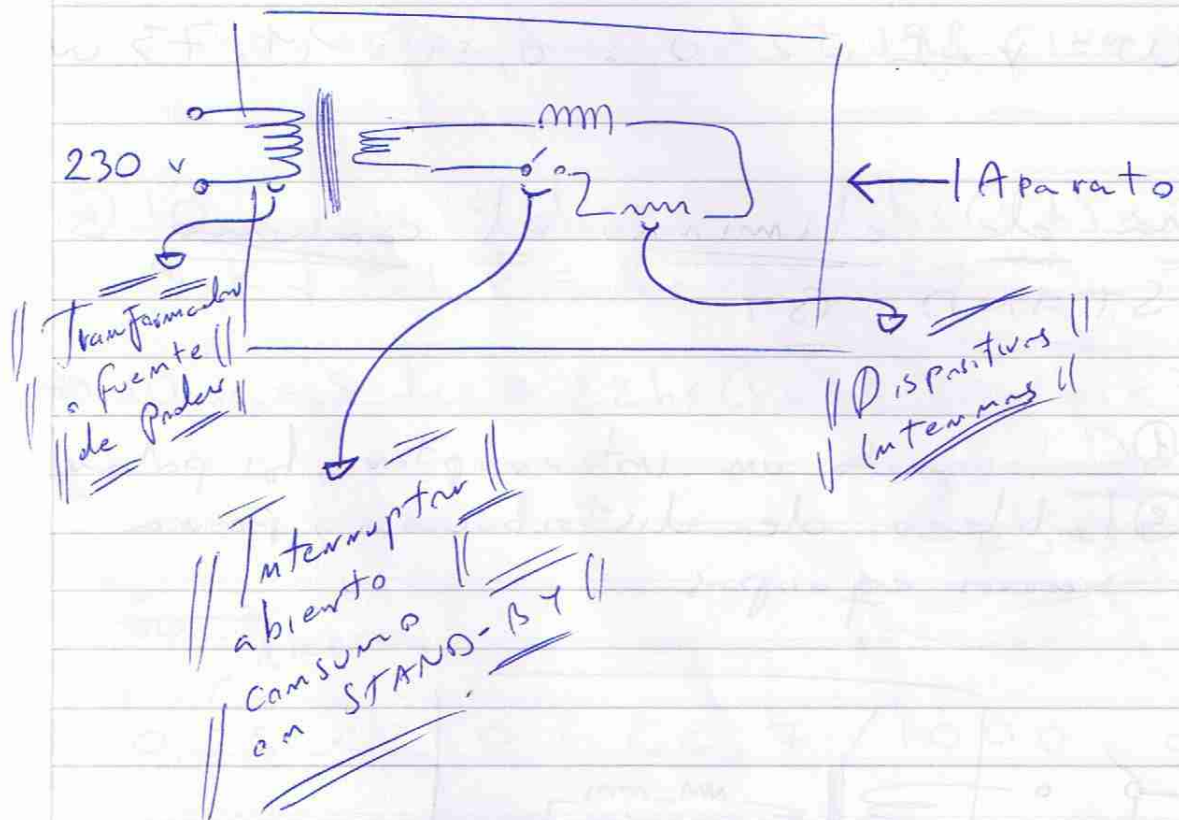 230 v
Aparato
Transformador
o fuente
de Poder
Dispositivos
Internos
Interruptor
abierto
consumo
en STAND-BY